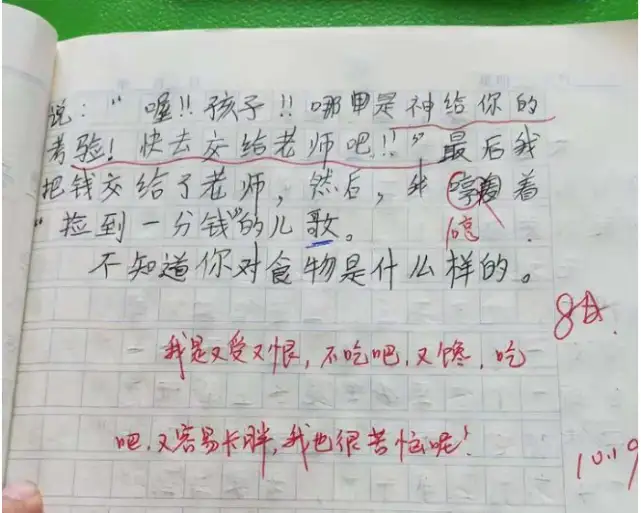 说：“喔!!孩子!!哪里是神给你的
考验!快去交给老师吧!!”最后我
把钱交给了老师，然后，我哼着
“捡到一分钱”的儿歌。
哼
不知道你对食物是什么样的。
我是又爱又恨，不吃吧，又馋，吃
吧，又容易长胖，我也很苦恼呢!
10.19